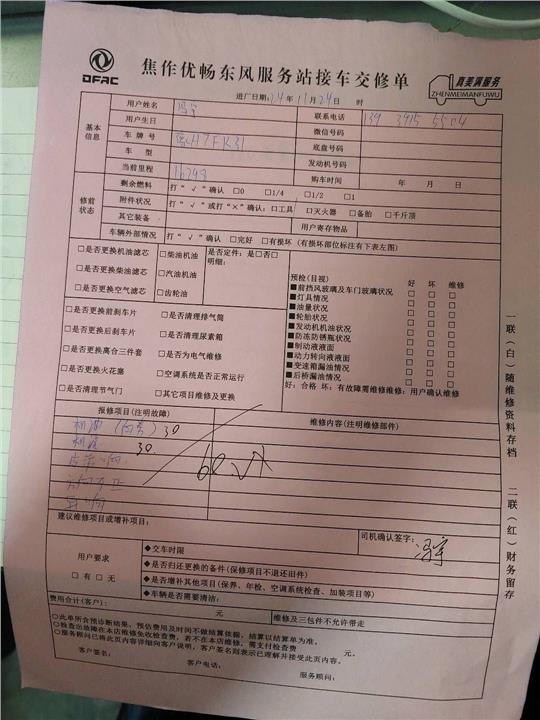 DFAC
焦作优畅东风服务站接车交修单
真美满服务
ZHENMEIMANFUWU
进厂日期:14年11月24日 时
基本信息 用户姓名 冯宇 联系电话 139 3915 5504
用户生日 微信号码
车牌号 底盘号码
车型 发动机号码
当前里程 16298 购车时间 年 月 日
修前状态 剩余燃料 打“√”确认 □0 □1/4 □1/2 □1
附件状况 打“√”或打“×”确认:□工具 □灭火器 □备胎 □千斤顶
其它装备 用户寄存物品
车辆外部情况 打“√”确认 □完好 □有损坏(有损坏部位标注有下表左图)
□是否更换机油滤芯 □柴油机油 是否定件:是□否□
明细:
□是否更换柴油滤芯 □汽油机油
□是否更换空气滤芯 □齿轮油
预检(目视) 好 坏 维修
■前挡风玻璃及车门玻璃状况 □ □ □
■灯具情况 □ □ □
■油量状况 □ □ □
■轮胎状况 □ □ □
■发动机机油状况 □ □ □
■防冻防锈瓶状况 □ □ □
■制动液液面 □ □ □
■动力转向液液面 □ □ □
■变速箱漏油情况 □ □ □
■后桥漏油情况 □ □ □
好:合格 坏:有故障需维修维修:用户确认维修
□是否更换前刹车片 □是否清理排气筒
□是否更换后刹车片 □是否清理尿素箱
□是否更换离合三件套 □是否为电气维修
□是否更换火花塞 □空调系统是否正常运行
□是否清理节气门 □其它项目维修及更换
报修项目(注明故障) 维修内容(注明维修部件)
机油 30
机滤 30
60
建议维修项目或增补项目:
司机确认签字:
冯宇
用户要求
□有 □无
◆交车时限
◆是否归还更换的备件(保修项目不退还旧件)
◆是否增补其他项目(保养、年检、空调系统检查、加装项目等)
◆车辆是否需要清洁:
费用合计(客户): 元 维修及三包件不允许带走
○此单所含预诊断结果,预估费用及时间不做结算依据,结算以结算单为准。
○检查出故障在本店维修免收检查费,若不在本店维修,需支付检查费 元。
○服务顾问已将此页内容详细向客户说明,客户签名则表示已理解并接受此页内容。
客户签名: 客户电话: 服务顾问:
一联(白)随维修资料存档
二联(红)财务留存